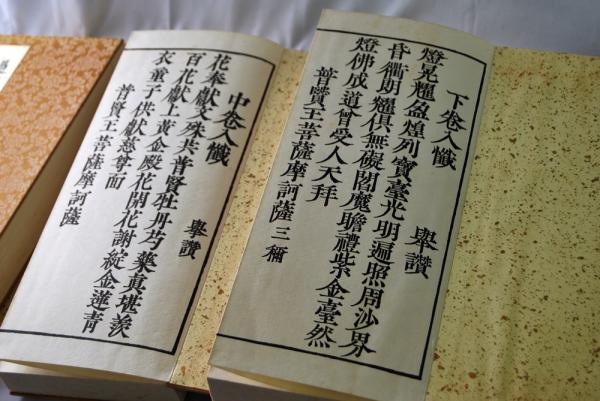 下卷入懺 舉讚
燈晃耀盈煌列寶臺光明遍照周沙界
昏衢朗耀俱無礙閻魔瞻禮紫金臺然
燈佛成道曾受人天拜
普賢王菩薩摩訶薩 三稱
中卷入懺 舉讚
花奉獻文殊共普賢牡丹芍藥真堪羨
百花獻上黃金殿花開花謝綻金蓮青
衣童子供獻慈尊面
普賢王菩薩摩訶薩